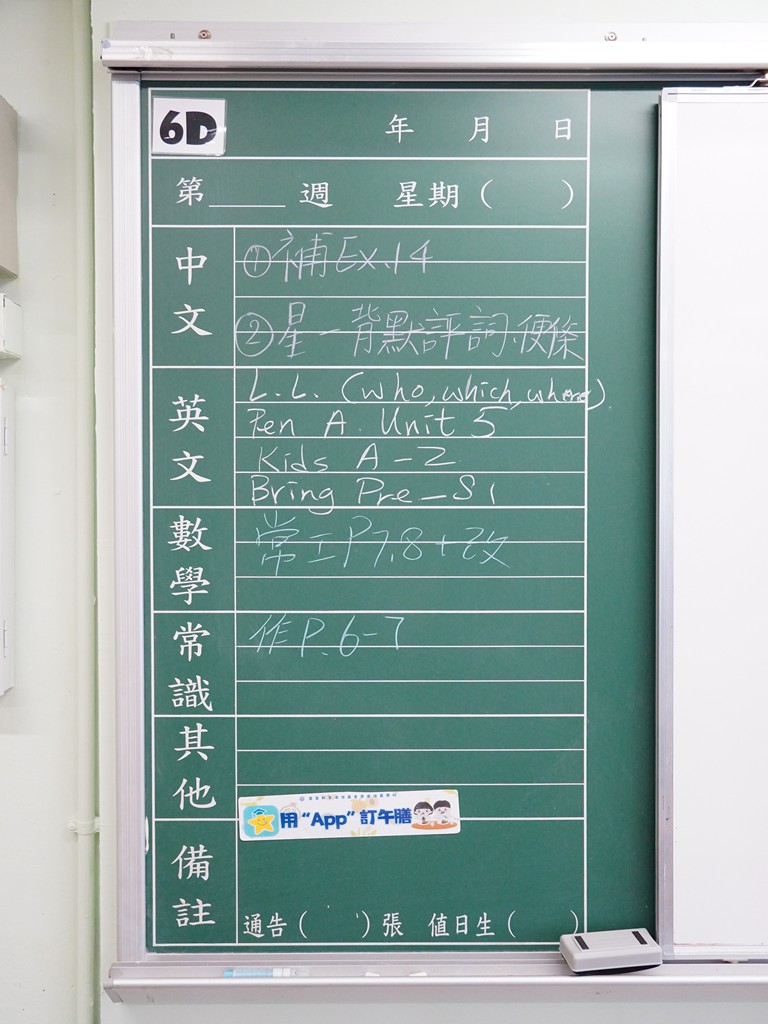 6D 年 月 日
第____週 星期( )
中文
①補Ex.14
②星一背默評詞、便條
英文
L.L. (who, which, where)
Pen A Unit 5
Kids A-Z
Bring Pre-S1
數學
常工P7,8+改
常識
作P.6-7
其他
用“App”訂午膳
備註
通告( )張 值日生( )